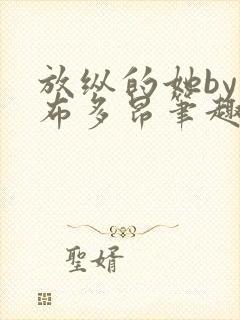 放纵的她by
布多昂笔趣
聖婿